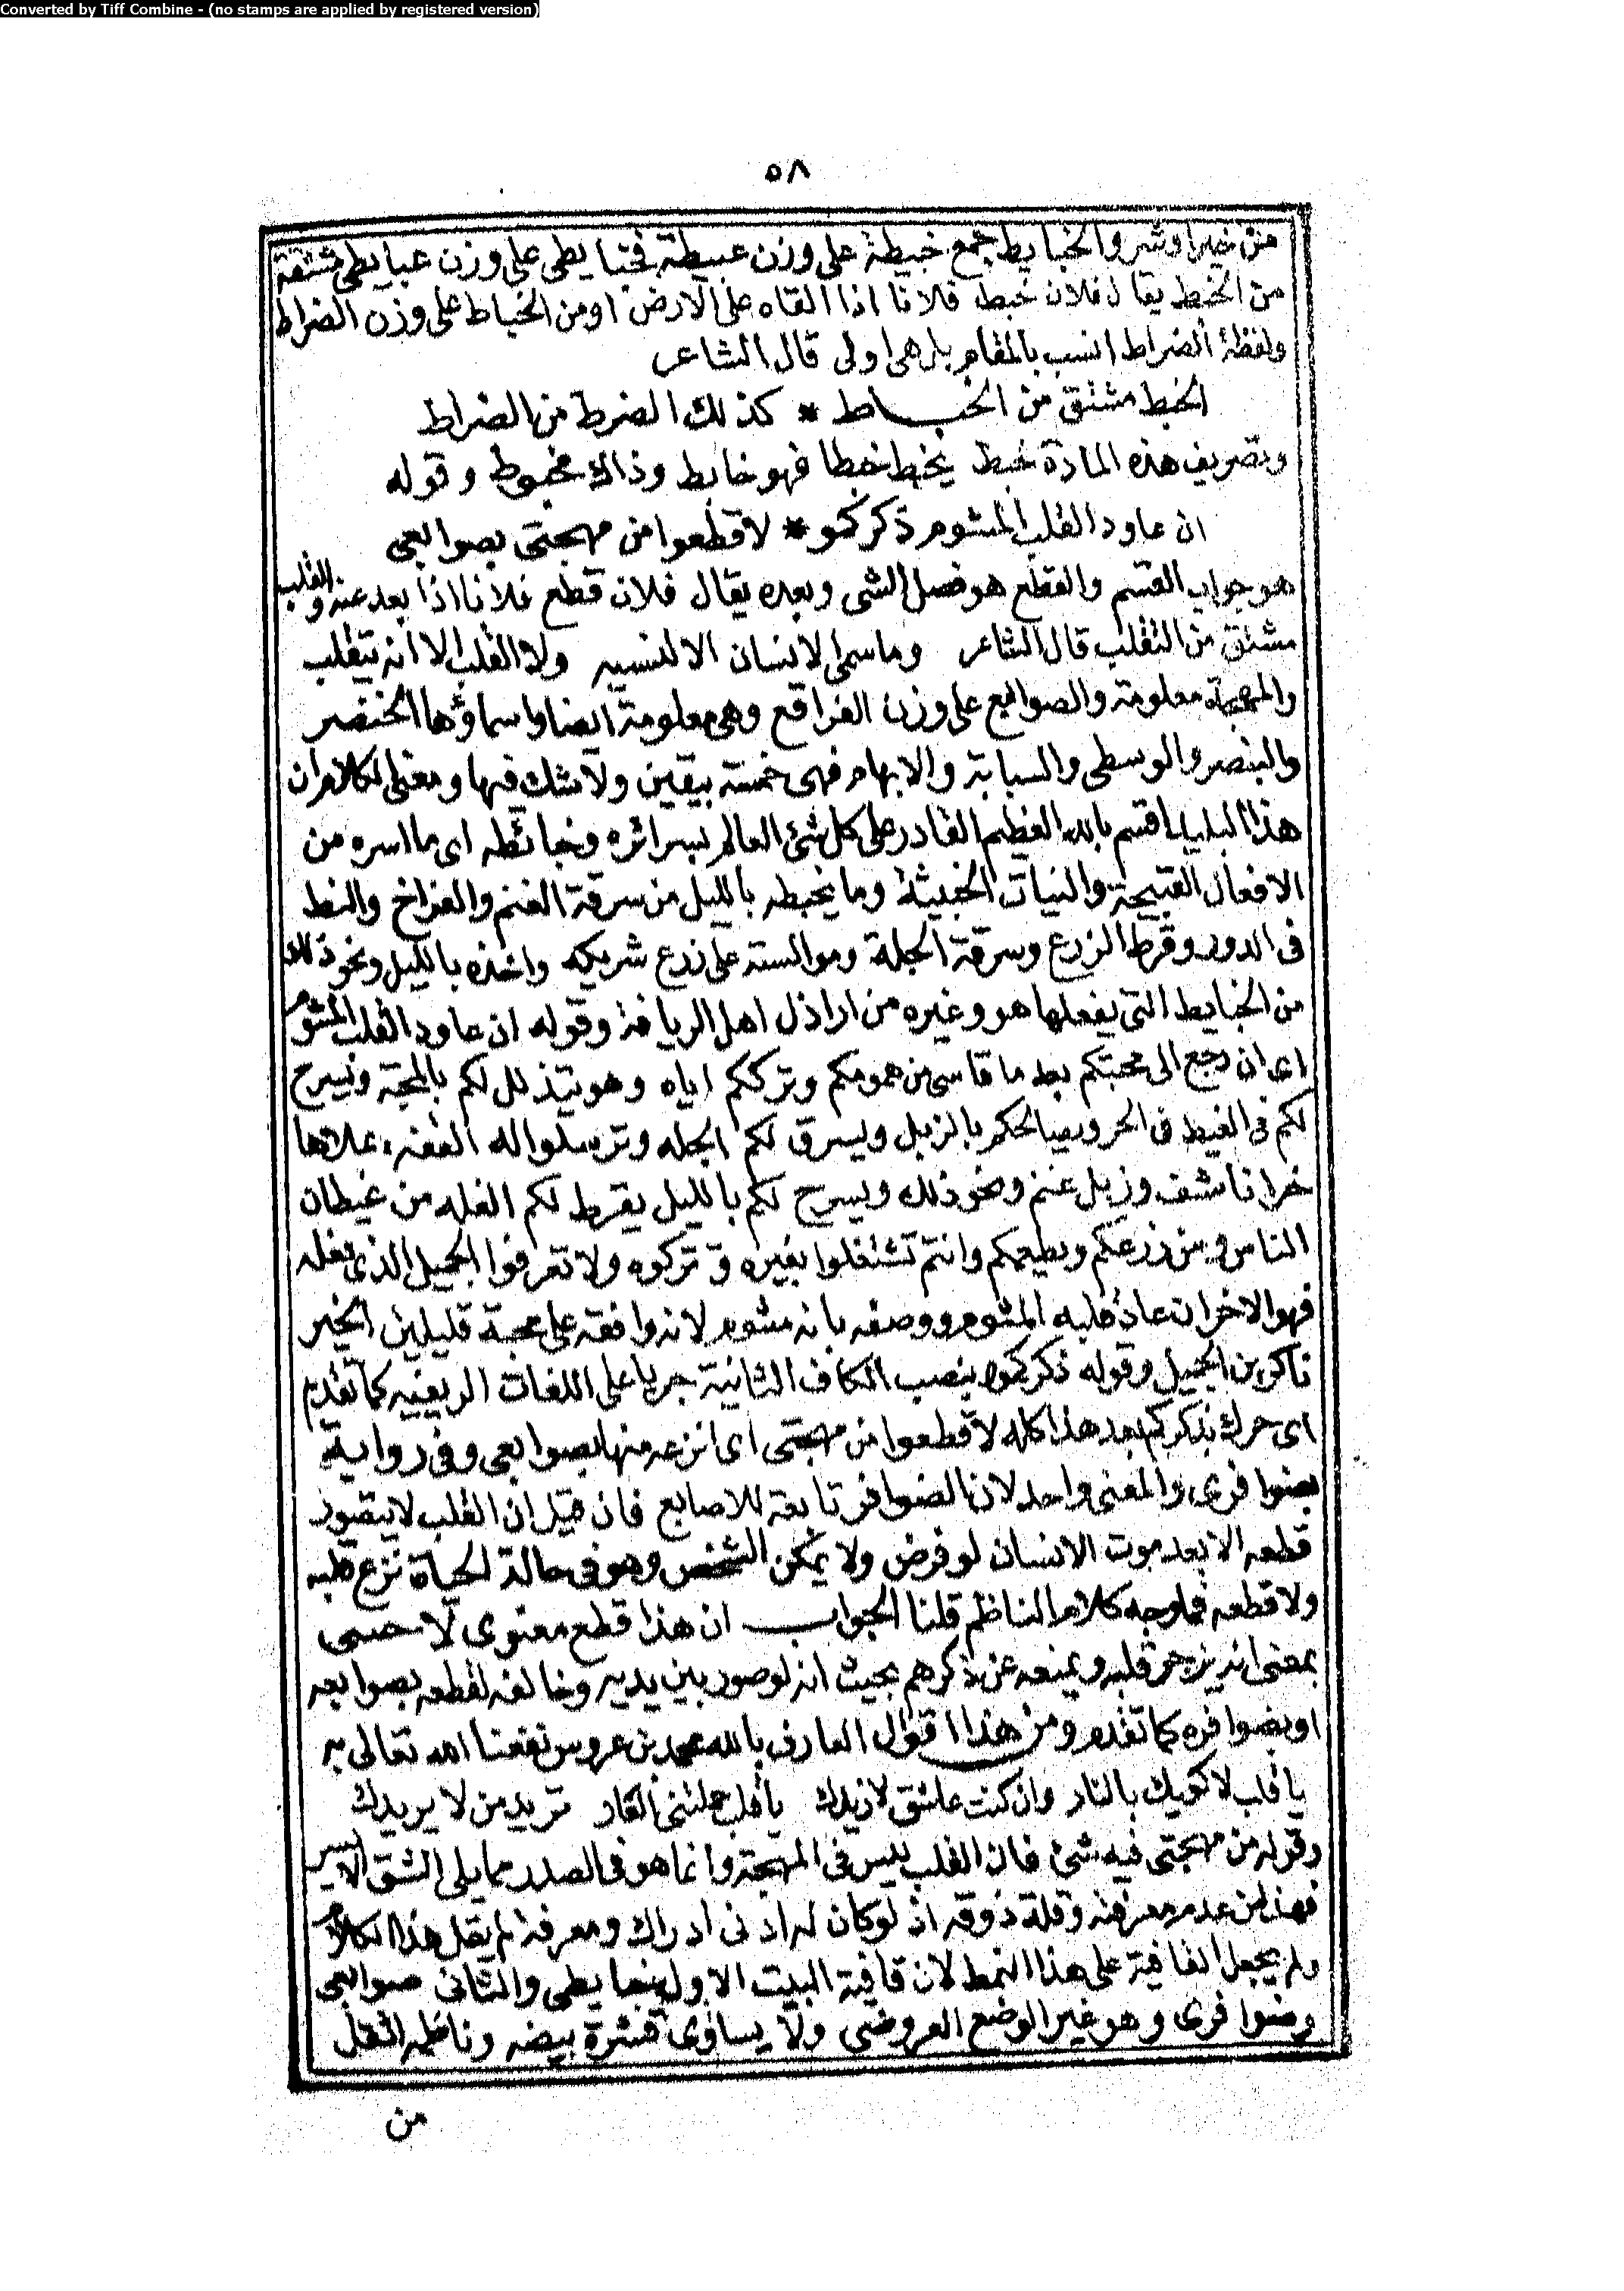 Converted by Tiff Combine - (no stamps are applied by registered version)
٥٨
من خير او شر والخبايط جمع خبيطة على وزن عبيطة فخبايطى على وزن عبايطى مشتقة
من الخبط يقال فلان خبط فلانا اذا القاه على الارض او من الخباط على وزن الضراط
ولفظة الضراط انسب بالمقام بل هى اولى قال الشاعر
الخبط مشتق من الخباط * كذلك الضرط من الضراط
وتصريف هذه المادة خبط يخبط خبطا فهو خابط وذاك مخبوط وقوله
ان عاود القلب المشوم ذكركمو * لاقطعوا من مهجتى بصوابعى
هو جواب القسم والقطع هو فصل الشى وبعده يقال فلان قطع فلانا اذا بعد عنه والقلب
مشتق من التقلب قال الشاعر وما سمى الانسان الا لنسيه ولا القلب الا انه يتقلب
والمهجة معلومة والصوابع على وزن الفراقع وهى معلومة ايضا واسماؤها الخنصر
والبنصر والوسطى والسبابة والابهام فهى خمسة بيقين ولا شك فيها ومعنى الكلام ان
هذا البليد اقسم بالله العظيم القادر على كل شئ العالم بسرائره وخبائطه اى ما اسره من
الافعال القبيحة والنيات الخبيثة وما يخبطه بالليل من سرقة الغنم والفراخ والنط
فى الدور وقرط الزرع وسرقة الجلة وموالسته على زرع شريكه واخذه بالليل ونحو ذلك
من الخبايط التى يفعلها هو وغيره من اراذل اهل الريافة وقوله ان عاود القلب المشوم
اى ان رجع الى محبتكم بعد ما قاسى من همومكم وترككم اياه وهو يتذلل لكم بالمحبة ويسرح
لكم فى الغيط فى الحر ويصالحكم بالزبل ويسرق لكم الجله وترسلوا له القفه يملاها
خرا ناشف وزبل غنم ونحو ذلك ويسرح لكم بالليل يقرط لكم الغله من غيطان
الناس ومن زرعكم وبطيحكم وانتم تشتغلوا بغيره وتتركوه ولا تعرفوا الجميل الذى فعله
فهو الاخر ان عاد قلبه المشوم ووصفه بانه مشوم لانه وافقه على محبة قليلين الخير
ناكرين الجميل وقوله ذكركموا بنصب الكاف الثانية جريا على اللغات الريفيه كما تقدم
اى حرك بذكركم بعد هذا كله لاقطعوا من مهجتى اى انزعه منها بصوابعى وفى رواية
بضوافرى والمعنى واحد لان الضوافر تابعة للاصابع فان قيل ان القلب لا يتصور
قطعه الا بعد موت الانسان لو فرض ولا يمكن الشخص وهو فى حالة الحياة نزع قلبه
ولا قطعه فما وجه كلام الناظم قلنا الجواب ان هذا قطع معنوى لا حسى
بمعنى انه يزجر قلبه ويمنعه عن ذكرهم بحيث انه لو صور بين يديه وخالفه لقطعه بصوابعه
او بضوافره كما تقدم ومن هذا اقوال العارف بالله محمد بن عروس نفعنا الله تعالى به
يا قلب لاكويك بالنار وان كنت عاشق لازيدك يا قلب حملتنى العار تريد من لا يريدك
وقوله من مهجتى فيه شئ فان القلب ليس فى المهجة وانما هو فى الصدر مما يلى الشق الايسر
فهذا من عدم معرفته وقلة ذوقه اذ لو كان له ادنى ادراك ومعرفة لم يقل هذا الكلام
ولم يجعل القافية على هذا النمط لان قافية البيت الاول خبايطى والثانى صوابعى
وضوافرى وهو غير الوضع العروضى ولا يساوى قشرة بيضه وناظمه اثقل
من